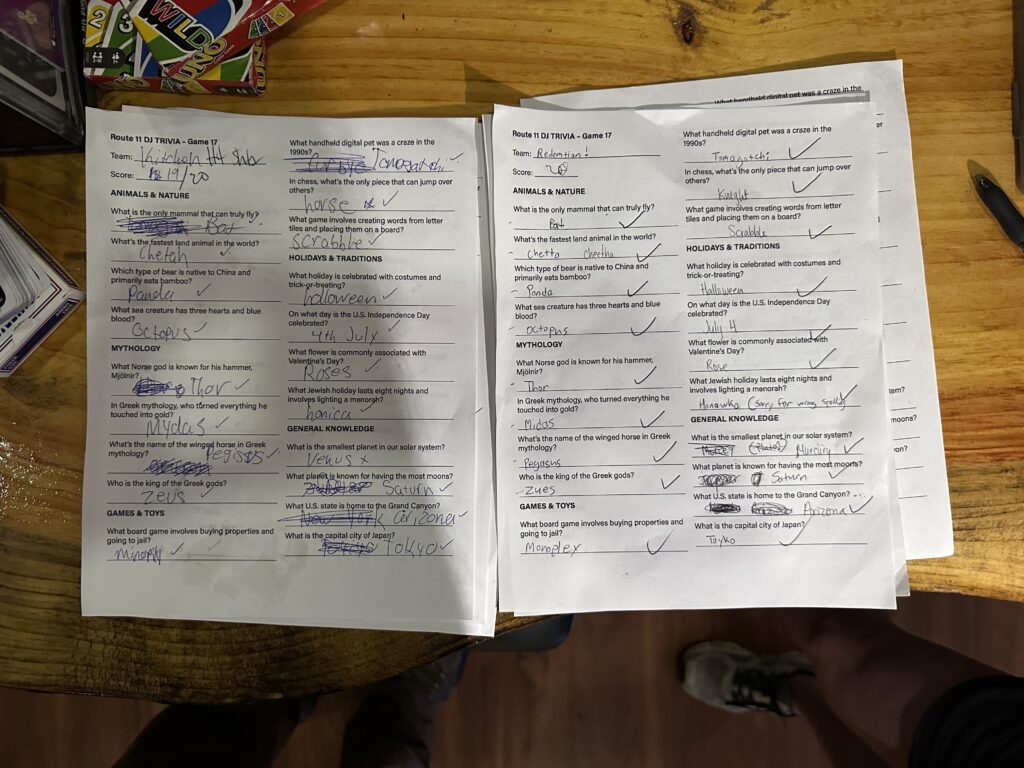 WILDO
UNO
2
3
Route 11 DJ TRIVIA – Game 17
Team: Kitchen
Score: 19/20
ANIMALS & NATURE
What is the only mammal that can truly fly?
Bat
What's the fastest land animal in the world?
Chetah
Which type of bear is native to China and
primarily eats bamboo?
Panda
What sea creature has three hearts and blue
blood?
Octopus
MYTHOLOGY
What Norse god is known for his hammer,
Mjölnir?
Thor
In Greek mythology, who turned everything he
touched into gold?
Mydas
What's the name of the winged horse in Greek
mythology?
Pegisus
Who is the king of the Greek gods?
Zeus
GAMES & TOYS
What board game involves buying properties and
going to jail?
What handheld digital pet was a craze in the
1990s?
In chess, what's the only piece that can jump over
others?
horse
What game involves creating words from letter
tiles and placing them on a board?
Scrabble
HOLIDAYS & TRADITIONS
What holiday is celebrated with costumes and
trick-or-treating?
holloween
On what day is the U.S. Independence Day
celebrated?
4th July
What flower is commonly associated with
Valentine's Day?
Roses
What Jewish holiday lasts eight nights and
involves lighting a menorah?
honica
GENERAL KNOWLEDGE
What is the smallest planet in our solar system?
Venus x
What planet is known for having the most moons?
Saturn
What U.S. state is home to the Grand Canyon?
New York arizona
What is the capital city of Japan?
Tokyo
Route 11 DJ TRIVIA – Game 17
Team: Redemtion!
Score: 20
ANIMALS & NATURE
What is the only mammal that can truly fly?
Bat
What's the fastest land animal in the world?
Chetto cheetha
Which type of bear is native to China and
primarily eats bamboo?
Panda
What sea creature has three hearts and blue
blood?
Octopus
MYTHOLOGY
What Norse god is known for his hammer,
Mjölnir?
Thor
In Greek mythology, who turned everything he
touched into gold?
Midas
What's the name of the winged horse in Greek
mythology?
Pegasus
Who is the king of the Greek gods?
Zues
GAMES & TOYS
What board game involves buying properties and
going to jail?
Monoplex
What handheld digital pet was a craze in the
1990s?
Tomagatchi
In chess, what's the only piece that can jump over
others?
Knight
What game involves creating words from letter
tiles and placing them on a board?
Scrabble
HOLIDAYS & TRADITIONS
What holiday is celebrated with costumes and
trick-or-treating?
Halloween
On what day is the U.S. Independence Day
celebrated?
July 4
What flower is commonly associated with
Valentine's Day?
Rose
What Jewish holiday lasts eight nights and
involves lighting a menorah?
Hanawka (Sorry for wrong spelling)
GENERAL KNOWLEDGE
What is the smallest planet in our solar system?
(Pluto) Murcury
What planet is known for having the most moons?
Saturn
What U.S. state is home to the Grand Canyon?
Arizona
What is the capital city of Japan?
Toyko
What handheld digital pet was a craze in the